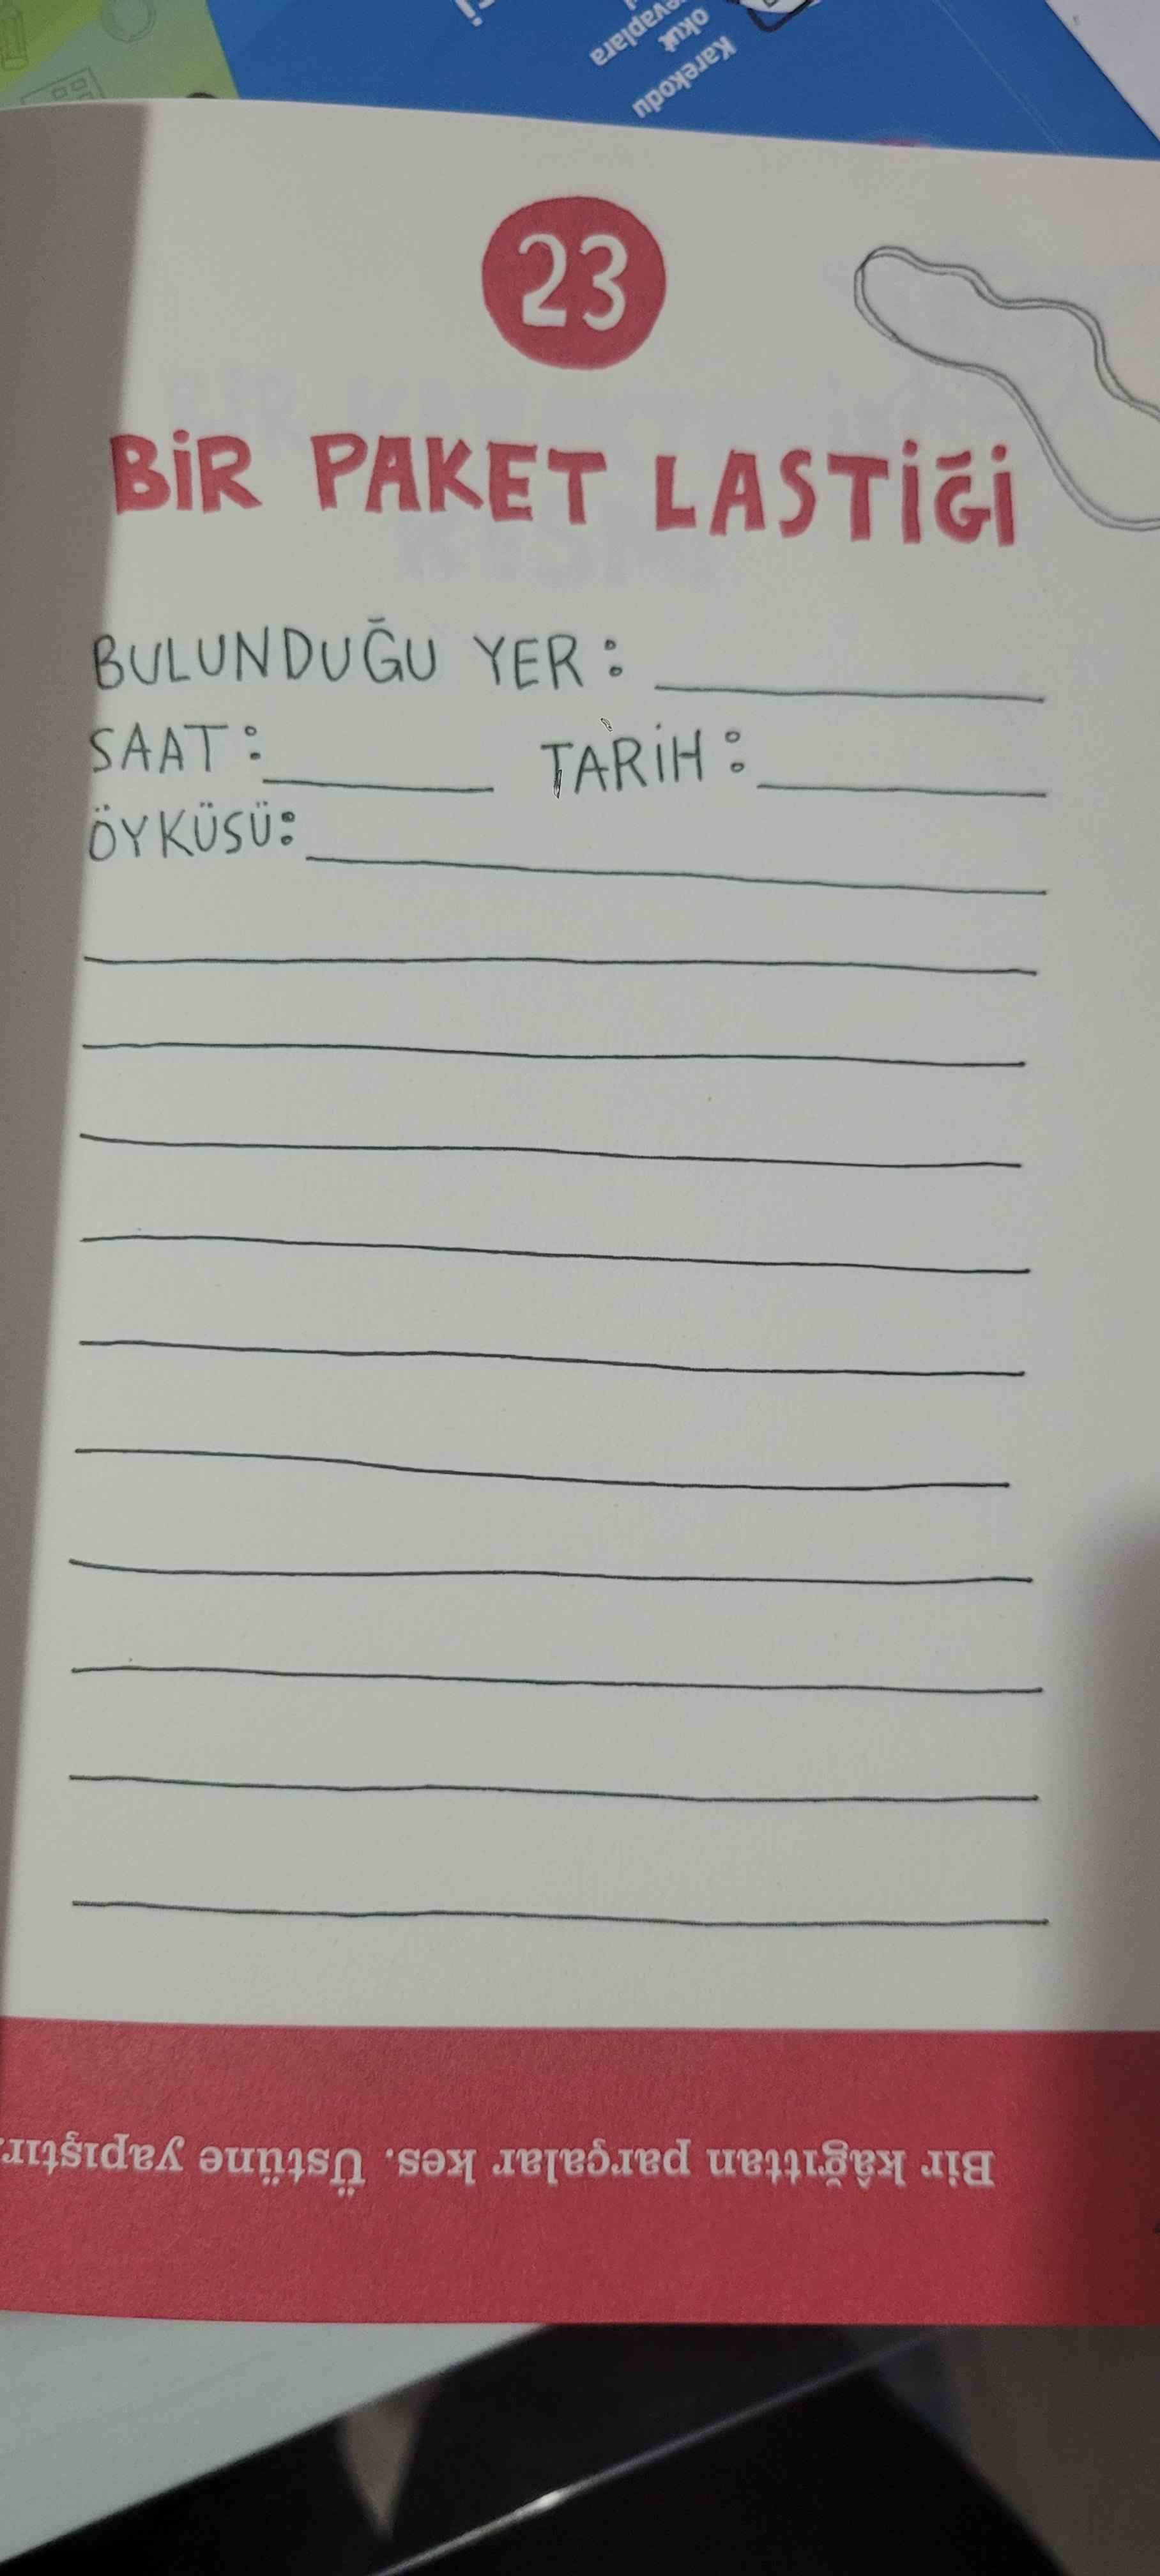 Karekodu
okut
23
BİR PAKET LASTİĞİ
BULUNDUĞU YER:
SAAT: TARİH:
ÖYKÜSÜ:
Bir kâğıttan parçalar kes. Üstüne yapıştır.